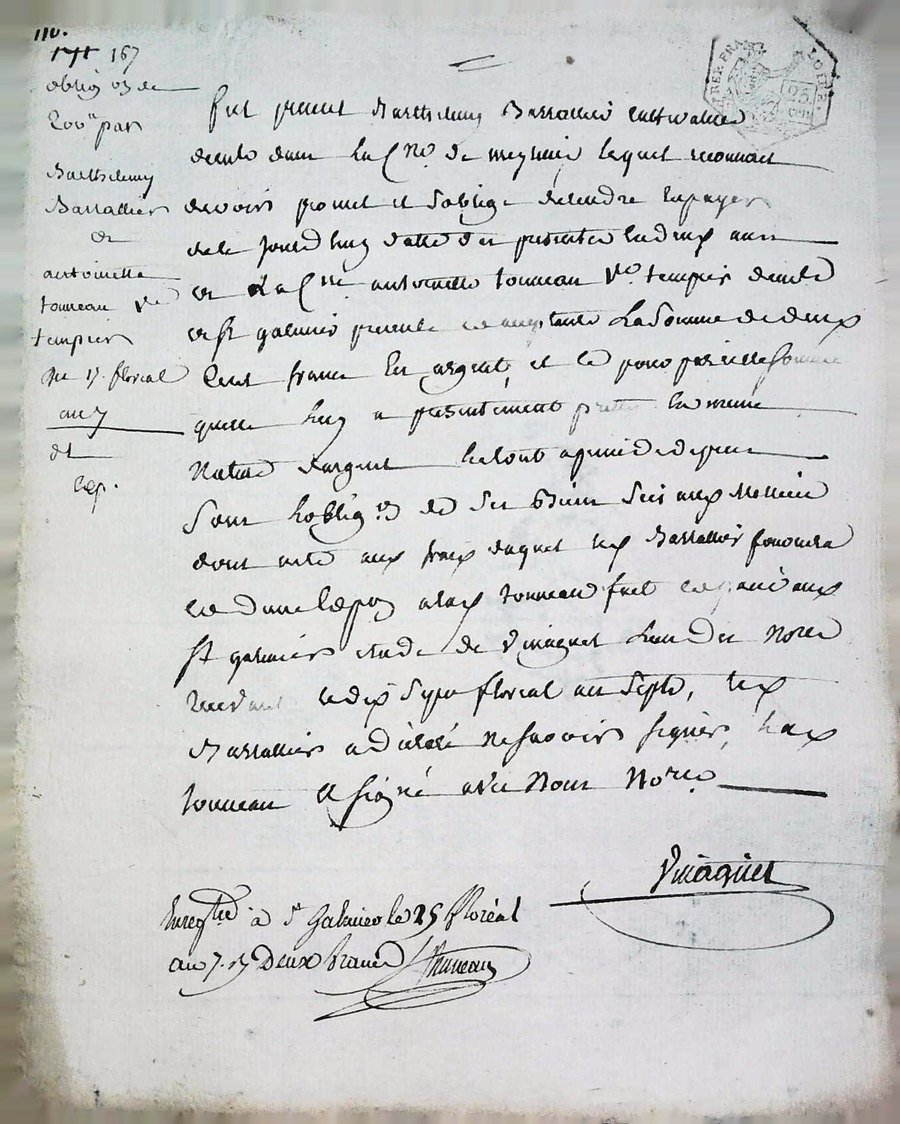 110.
171 167
oblig on de
200ll par
Barthelemy
Barrallier
et
antoinette
tonneau ve
tempier
du 17 floreal
an 7
dt
exp.
RÉP. FRA
LOIRE
25
cen
fut present Barthelemy Barrallier cultivateur
demt dans la Cne de meyrieu lequel reconnait
devoir promet et soblige de rendre et payer
de ce jourdhuy datte des presentes en deux ans
et a la Cne antoinette tonneau ve tempier demte
et st galmier presente et acceptante la somme de deux
cent francs en argent, et ce pour pareille somme
quelle luy a presentement pretté en meme
nature d'argent le tout a peine de depens
sous lobligon de ses biens
dont acte aux frais duquel led Barrallier fournira
et dune exp a lad tonneau fait et passé aud
st galmier etude de Vinagnet lun des Nores
recevant le dix sept floreal an sept, led
Barrallier a déclaré ne savoir signer, lad
tonneau a signé avec nous Nore
Vinagnet
Enregtré à St Galmier le 25 floréal
an 7. Deux francs